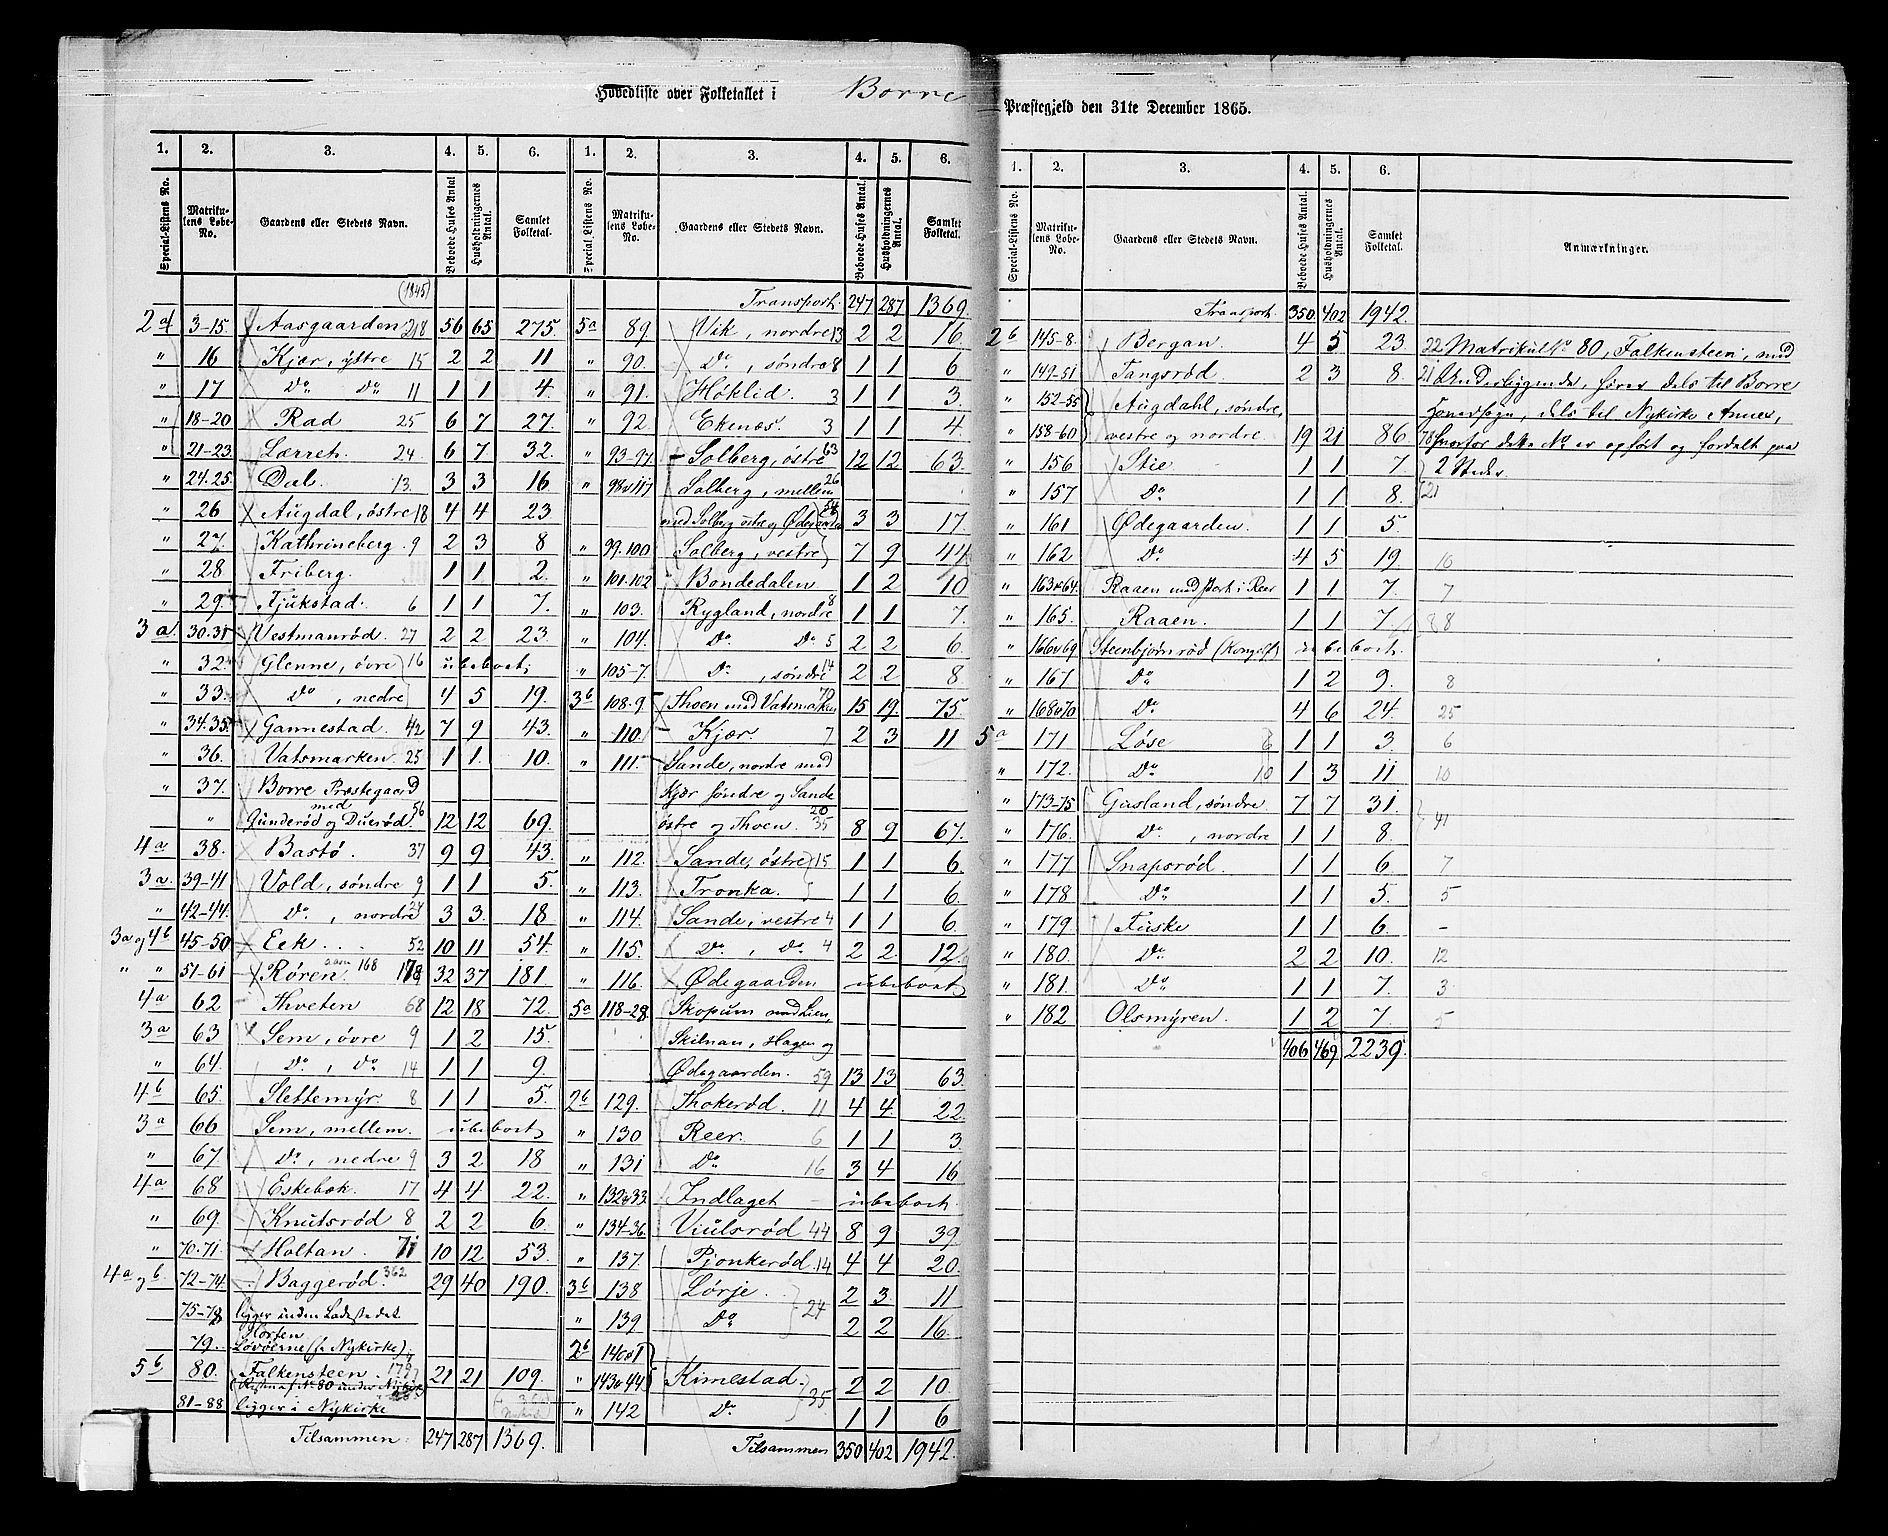 Hovedliste over Folketallet i Borre Præstegjeld den 31te December 1865.
1. 2. 3. 4. 5. 6. 1. 2. 3. 4. 5. 6.
Special-Listens No. Matrikulens Løbe-No. Gaardens eller Stedets Navn. Beboede Huses Antal Husholdningernes Antal. Samlet Folketal. Special-Listens No. Matrikulens Løbe-No. Gaardens eller Stedets Navn. Beboede Huses Antal. Husholdningernes Antal. Samlet Folketal.
(1845)
2a 3-15. Aasgaarden 218 56 65 275.
" 16 Kjær, yttre 15 2 2 11
" 17 Do. Do. 11 1 1 4.
" 18-20 Rad 25 6 7 27.
" 21-23. Lærret. 24. 6 7 32.
" 24.25. Dal. 13. 3 3 16
" 26 Augdal, østre 18 4 4 23
" 27. Kathrineberg. 9 2 3 8
" 28 Friberg. 1 1 2.
" 29. Fjukstad. 6 1 1 7.
3a. 30.31 Vestmanrød. 27 2 2 23
" 32. Glenne, øvre 16 ubeboet;
" 33. Do, nedre 4 5 19.
" 34.35. Gannestad. 42 7 9 43.
" 36. Vatsmarken. 25 1 1. 10.
" 37. Borre Præstegaard
" med Gunderød og Duerød. 56 12 12 69.
4a 38. Bastø. 37 9 9 43.
3a. 39-41 Vold, søndre 9 1 1 5.
" 42-44. Do, nordre 24 3 3. 18
3a og 4b 45-50 Eek. 52 10 11 54.
" " 51-61 Røren. 168 178 32 37 181
4a 62 Thveten 68 12 18 72.
3a 63 Sem, øvre 9 1 2 15.
" 64. Do, Do 14 1 1 9.
4b 65 Slettemyr. 8 1 1 5.
3a 66 Sem, mellem. ubeboet,
" 67 Do, nedre 9 3 2 18
4a 68 Eskebæk. 17 4 4 22.
" 69. Knutsrød 8 2 2 6.
" 70.71. Holtan. 71 10 12 53.
4a og b. 72-74. Baggerød. 362 29 40 190.
75-78 ligger under Ladestedet Horten
79. Løvøerne (fr Nykirke)
5b 80. Falkensteen. 21 21 109.
(Resten af No 80 under Nykirke
81-88 ligger i Nykirke
Tilsammen. 247 287 1369.
Transport. 247 287 1369.
5a 89. Vik, nordre 13 2 2 16
" 90. Do, søndre 8 1 1 6
" 91. Høklid. 3 1 1 3.
" 92. Ekenæs. 3 1 1 4
" 93-97. Solberg, østre 63 12 12 63.
" 98 & 117 Solberg, mellem 26
med Solberg østre og Ødegaarden 3 3 17.
" 99.100. Solberg, vestre 7 9 44
" 101-102 Bondedalen 1 2 10
" 103. Rygland, nordre 8 1 1 7.
" 104. Do Do 5 2 2 6.
" 105-7. Do, søndre 14 2 2 8
3b 108.9 Thoen med Vatsmarken 15 19. 75.
" 110. Kjær. 7 2 3 11
" 111. Sande, nordre med
Kjær søndre og Sande
østre og Thoen. 20 35 8 9 67.
" 112. Sande, østre 15 1 1 6.
" 113. Tronka. 1 1 6.
" 114. Sande, vestre 4 1 1 6
" 115. Do, Do 4 2 2. 12.
" 116. Ødegaarden ubeboet,
5a 118-28. Skopum med Lien,
Skilnan, Hagen og
Ødegaarden. 59 13 13 63.
2b 129. Thokerød. 11 4 4 22.
" 130 Reer. 6 1 1 3.
" 131 Do 16 3 4 16
" 132 & 33. Indlaget - ubeboet.
" 134-36. Viulsrød 44 8 9 39.
" 137. Pjonkerød. 14 4 4 20.
3b 138 Lørje. 24 2 3. 11
" 139 Do 2 2 16.
2b 140 & 1
" 143 & 44 Kirnestad. 35 2 2 10.
" 142 Do. 1 1 6
Tilsammen 350 402 1942.
1. 2. 3. 4. 5. 6.
Special-Listens No. Matrikulens Løbe-No. Gaardens eller Stedets Navn. Beboede Huses Antal Husholdningernes Antal. Samlet Folketal. Anmærkninger.
Transport. 350 402 1942.
2b 145-8. Bergan. 4 5 23 22 Matrikul No. 80, Falkensteen, med
" 149-51 Tangsrød. 2 3 8. 21 Underliggende, hører dels til Borre
" 152-55 Augdahl, søndre, Hovedsogn, dels til Nykirke Annex,
" 158-60 vestre og nordre. 19 21 86 78 hvorfor dette No er opført og fordelt paa
" 156 Stie 1 1 7. 2 Steder.
" 157 Do. 1 1 8. 21
" 161 Ødegaarden. 1 1 5
" 162 Do. 4 5 19. 10
" 163 & 64. Raaen med Port i Reer 1 1 7. 7
" 165. Raaen. 1 1 7. 8
" 166 & 69 Steenbjørnrød ubeboet.
" 167 Do. 1 2 9. 8
" 168 & 70 Do. 4 6 24. 25
5a 171 Løse 6 1 1 3. 6
" 172. Do. 10 1 3 11 10
" 173-75 Gusland, søndre 7 7 31. 41
" 176. Do, nordre 1 1 8.
" 177 Snapsrød. 1 1 6 7
" 178 Do. 1 1 5. 5
" 179 Fuske 1 1 6. -
" 180. Do. 2 2 10. 12
" 181. Do. 1 1 7. 3
" 182 Olsmyren. 1 2 7. 5
406 469 2239.